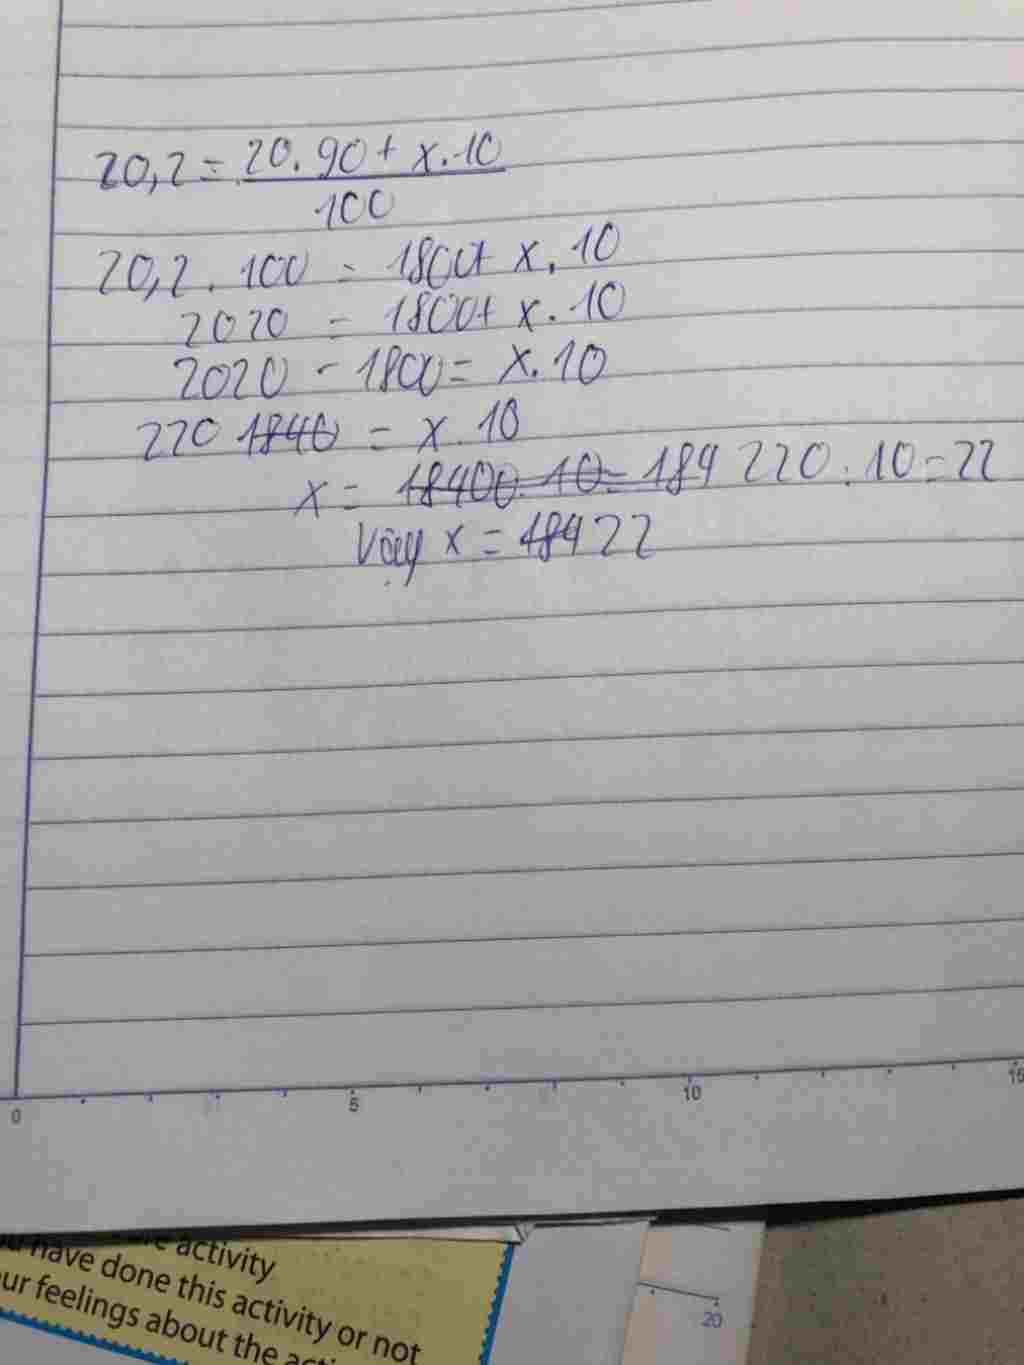 20,2 = 20.90 + x.10
100
20,2 . 100 = 1800+ x.10
2020 = 1800+ x.10
2020 - 1800 = x.10
220 1840 = x.10
x = 18400.10 = 184 220 : 10 = 22
Vậy x = 184 22
0 5 10 15
activity
have done this activity or not
ur feelings about the acti
20